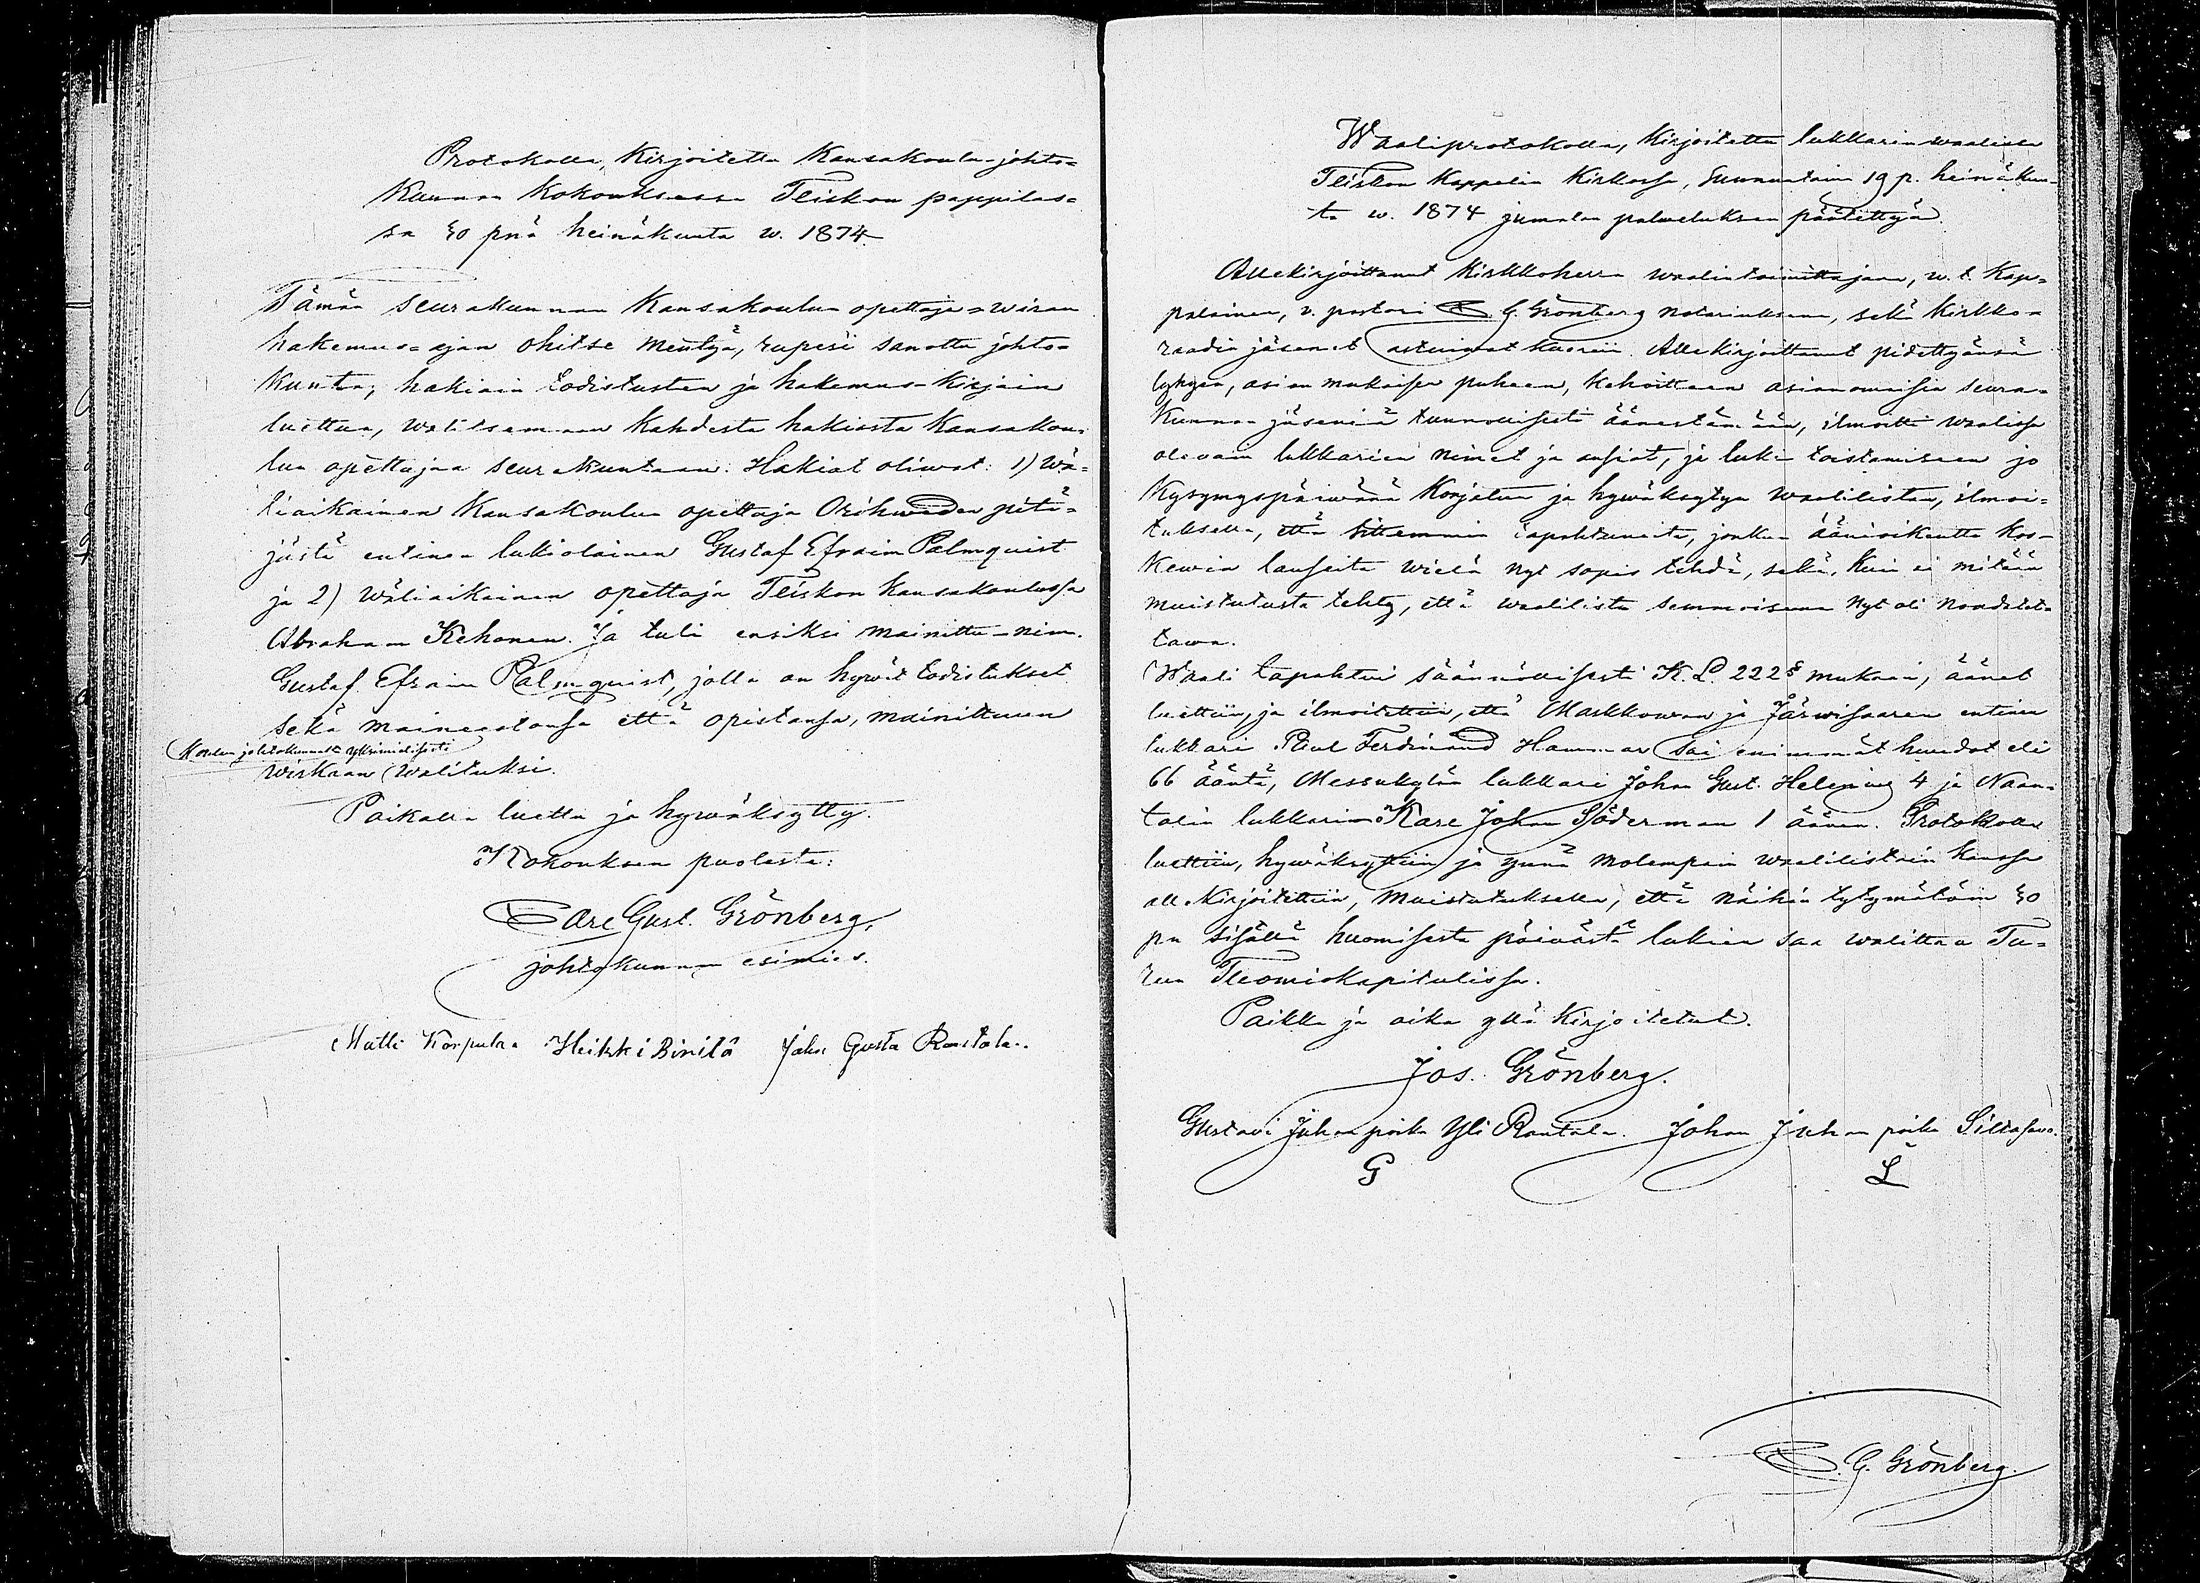 Protokolla, Kirjoitettu Kansakoulu-johto=
Kunnan Kokouksessa Teiskon pappilas=
sa 30 pnä heinäkuuta w. 1874.
Tämän seurakunnan Kansakoulun opettaja=wiran
hakemus=ajan ohitse mentyä, rupesi sanottu johto=
Kunta, hakiain todistusten ja hakemus-Kirjain
luettua, walitsemaan kahdesta hakiasta Kansakou=
lun opettajaa seurakuntaan. Hakiat oliwat: 1) Wä=
liaikainen Kansakoulun opettaja Orihweden pitä=
jästä entinen lukiolainen Gustaf Efraim Palmquist
ja 2) wäliaikainen opettaja Teiskon kansakoulussa
Abraham Kehonen. Ja tuli ensiksi mainittu - nim.
Gustaf Efraim Palmquist, jolla on hywät todistukset
sekä maineestansa että opistansa, mainittuun
Koulun johtokunnalta yksimielisesti
wirkaan walituksi.
Paikalla luettu ja hywäksytty.
Kokouksen puolesta:
Carl Gust. Grönberg,
johtokunnan esimies.
Matti Korpula Heikki Binilä Johan Gusta Rantala.
Waaliprotokolla, Kirjoitettu lukkarin waalissa
Teiskon Kappelin Kirkossa, Sunnuntaina 19 p. heinäkuu-
ta w. 1874 jumalan palweluksen päätettyä.
Allekirjoittanut Kirkkoherra waalin toimittajana, w. t. Kap=
palainen, v. pastori C. G. Grönberg notariuksena, sekä Kirkko=
raadin jäsenet astuiwat kuoriin. Allekirjoittanut pidettyänsä
lyhyen, asian mukaisen puheen, kehoittaen asianomaisia seura=
Kunnan jäseniä tunnollisesti äänestämään, ilmoitti waalissa
olevain lukkarien nimet ja ansiot, ja luki toistamiseen jo
Kysymyspäiwänä Korjatun ja hywäksytyn waalilistan, ilmoi=
tuksella, että sittemmin tapahtuneita, jonkun äänioikeutta kos=
Kewia lauseita wielä nyt sopii tehdä, sekä, kuin ei mitään
muistutusta tehty, että waalilista semmoisena nyt oli noudatet=
tawa.
Waali tapahtui säännöllisesti K. L. 222 § mukaan, äänet
luettiin, ja ilmoitettiin, että Markkowan ja Järwisaaren entinen
lukkari Paul Ferdinand Hammar sai enimmät huudot eli
66 ääntä, Messukylän lukkari Johan Gust. Helenius 4 ja Naan=
talin lukkarin Karl Johan Söderman 1 äänen. Protokolla
luettiin, hywäksyttiin ja ynnä molempain waalilistain kanssa
allekirjoitettiin, muistutuksella, että näihin tytymätöin 30
pn sisällä huomisesta päiwästä lukien saa walittaa Tu=
run Tuomiokapitulissa.
Paikka ja aika yllä kirjoitetut.
Jos. Grönberg.
Gustavi Juhan poika Yli Rantala. Johan Juhan poika
G L
C. G. Grönberg.